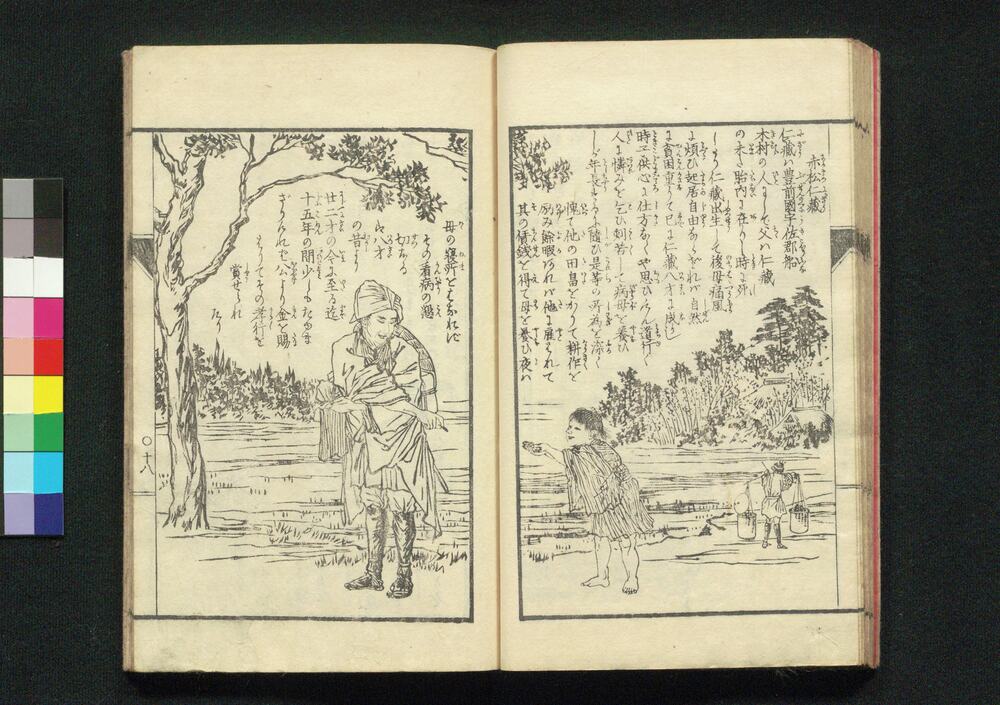 赤松仁藏
仁藏ハ豊前國宇佐郡船
木村の人にして父ハ仁藏
の未だ胎内に在りし時に死
しつ仁藏出生して後母痛風
に煩ひ起居自由ならざれバ自然
に貧困重りて已に仁藏八才に成し
時子供心に仕方なくや思ひけん道行く
人に憐みを乞ひ刻苦して病母を養ひ
しが年長ずるに随ひ是等の所為を深く
愧て他の田畠をかりて耕作を
励み餘暇あれバ他に雇ハれて
其の賃銭を得て母を養ひ夜ハ
母の寝所をはなれず
その看病の懇
切なる
八才
の昔より
廿二才の今に至る迄
十五年の間少しもたゆま
ざりけれバ公より金を賜
ハりてその孝行を
賞せられ
たり
○十八